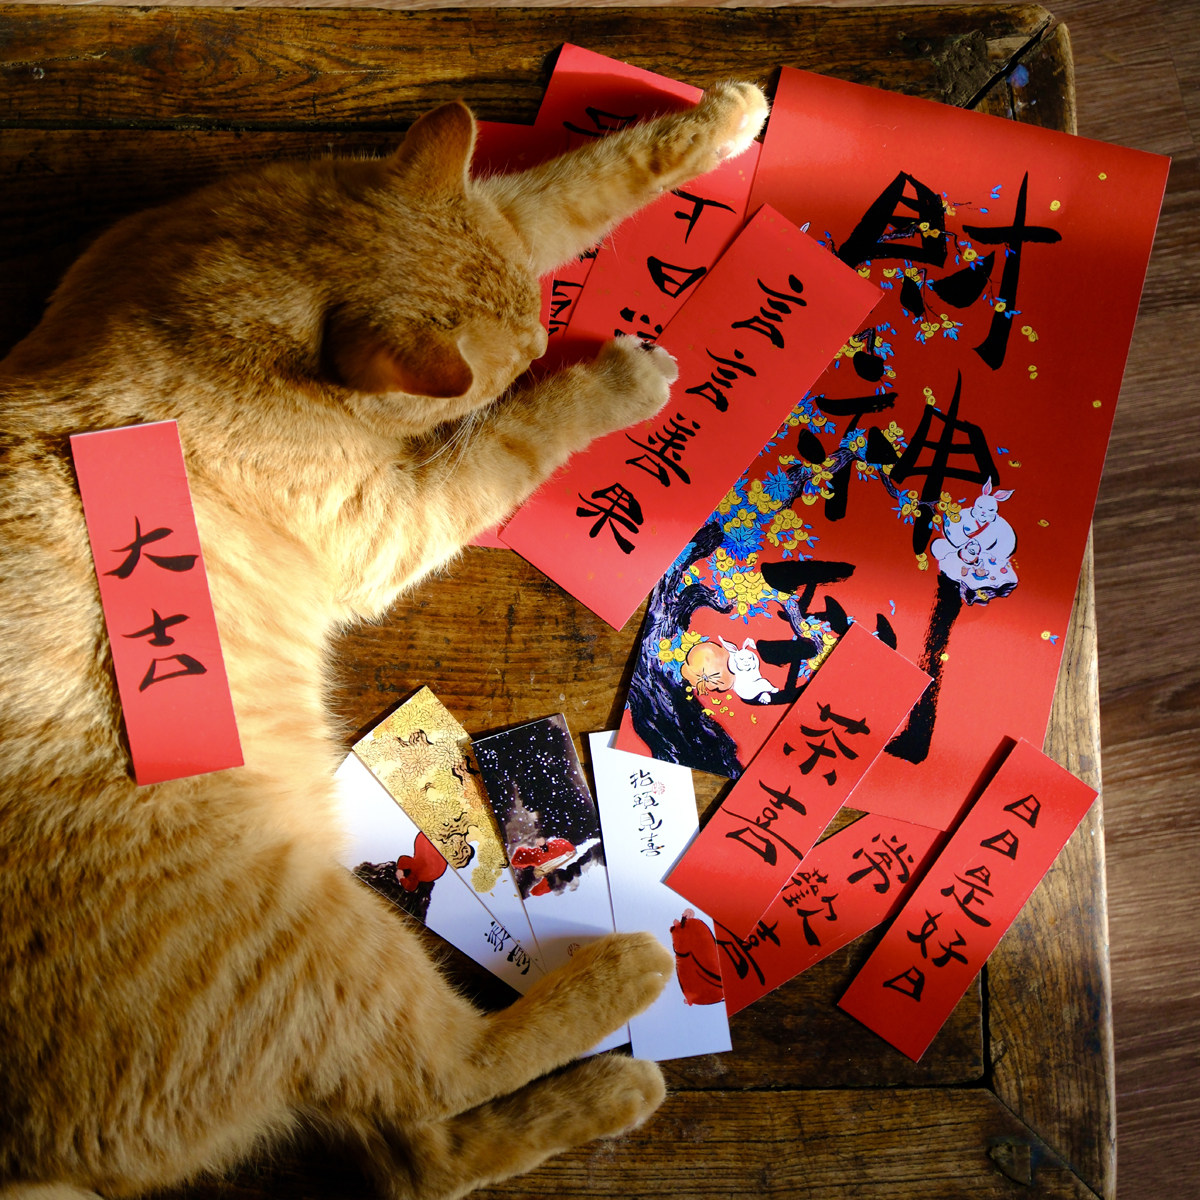 財神到
言言善果
大吉
茶喜
常歡喜
日日是好日
抬頭見喜